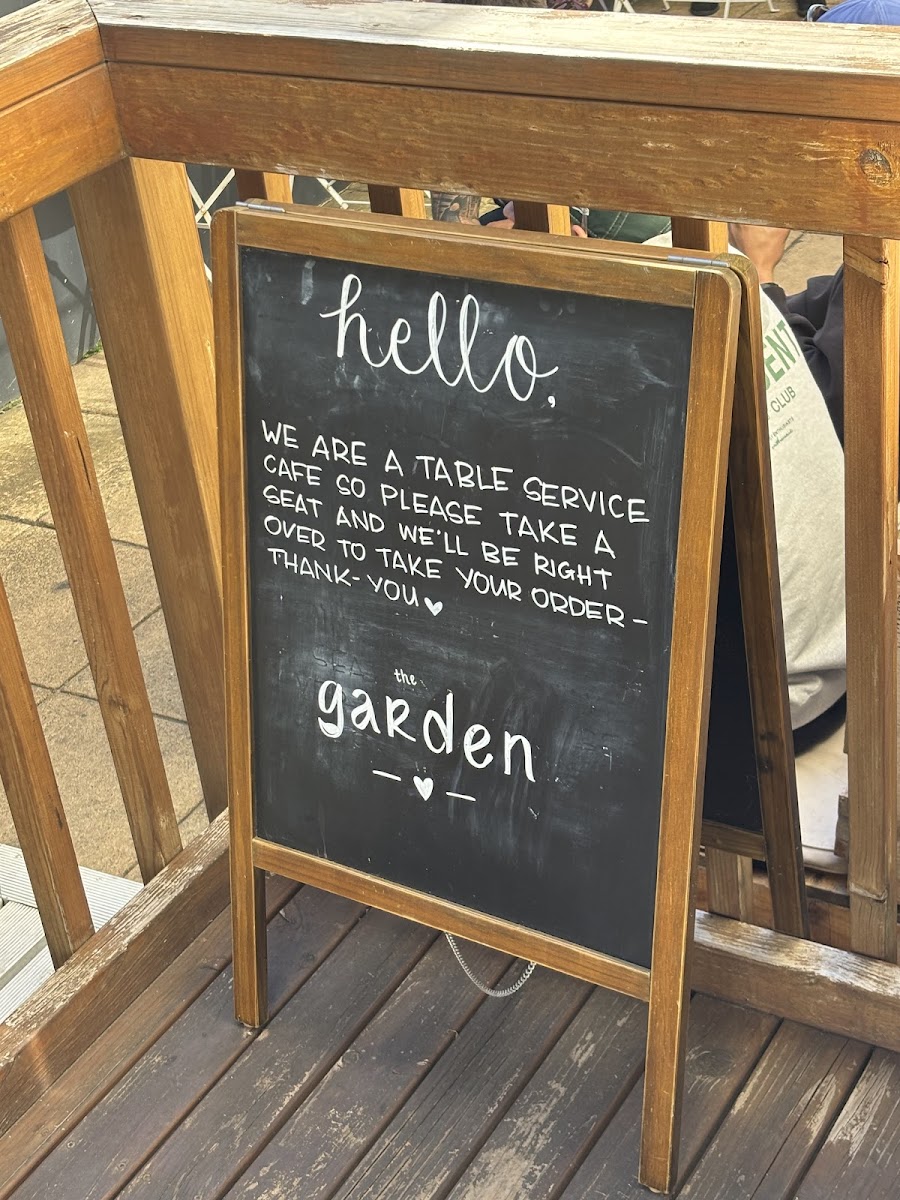 hello,
WE ARE A TABLE SERVICE
CAFE SO PLEASE TAKE A
SEAT AND WE'LL BE RIGHT
OVER TO TAKE YOUR ORDER –
THANK-YOU ♥
the
garden
– ♥ –
CLUB